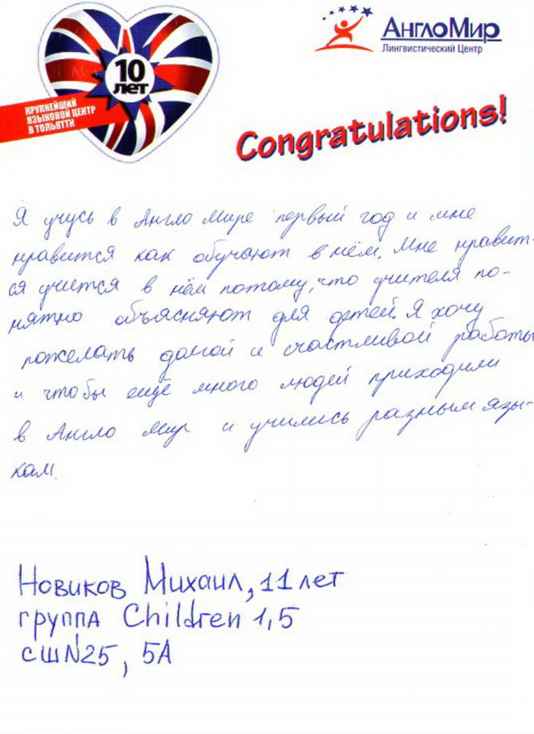 10
лет
КРУПНЕЙШИЙ
ЯЗЫКОВОЙ ЦЕНТР
В ТОЛЬЯТТИ
АнглоМир
Лингвистический Центр
Congratulations!
Я учусь в Англо Мире первый год и мне
нравится как обучают в нём. Мне нравит-
ся учится в нём потому, что учителя по-
нятно объясняют для детей. Я хочу
пожелать долгой и счастливой работы
и чтобы ещё много людей приходили
в Англо Мир и учились разным язы-
кам.
Новиков Михаил, 11 лет
группа Children 1,5
сш№25, 5А